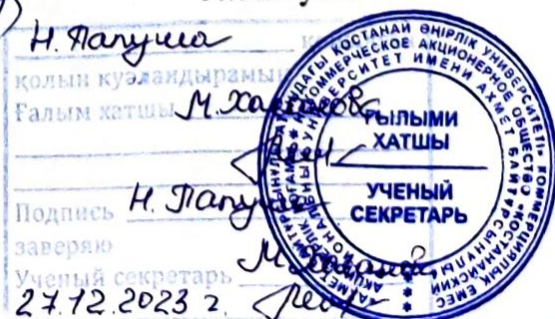 Н. Папуша
қолын куәландырамын
Ғалым хатшы М. Ха
Подпись Н. Папуш
заверяю
Ученый секретарь М.
27.12.2023 г.
ҒЫЛЫМИ
ХАТШЫ
УЧЕНЫЙ
СЕКРЕТАРЬ
ҚОСТАНАЙ ӨҢІРЛІК УНИВЕРСИТЕТІ» КОММЕРЦИЯЛЫҚ ЕМЕС
НЕКОММЕРЧЕСКОЕ АКЦИОНЕРНОЕ ОБЩЕСТВО «КОСТАНАЙСКИЙ
УНИВЕРСИТЕТ ИМЕНИ АХМЕТ БАЙТҰРСЫНҰЛЫ